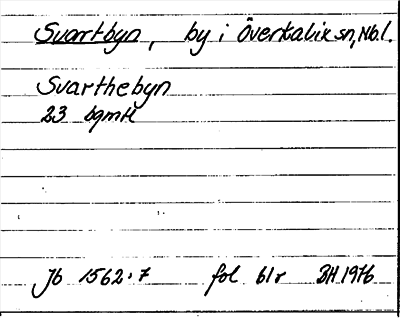 Svartbyn, by i Överkalix sn, Nb.l.
Svarthebyn
23 bgmH
Jb 1562:7 fol 61r BH 1976